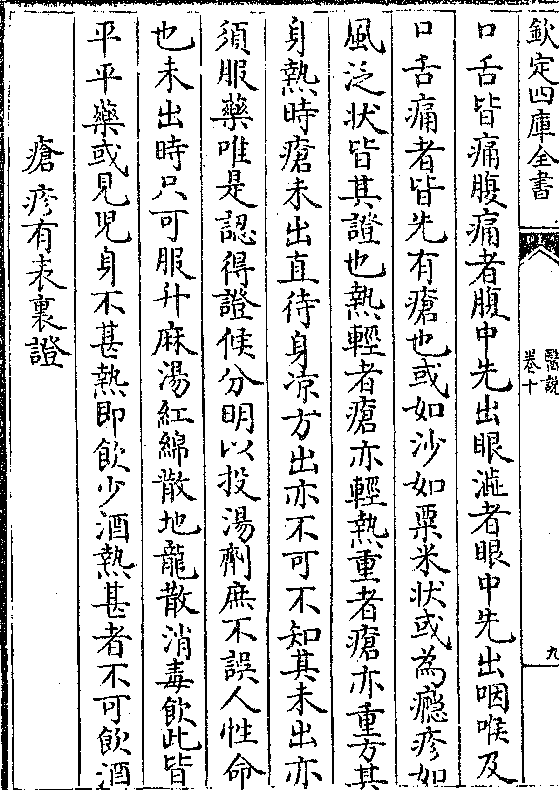 欽定四庫全書
醫說
卷十
九
口舌皆痛腹痛者腹中先出眼澁者眼中先出咽喉及
口舌痛者皆先有瘡也或如沙如粟米状或為癮疹如
風泛状皆其證也熱輕者瘡亦輕熱重者瘡亦重方其
身熱時瘡未出直待身凉方出亦不可不知其未出亦
須服藥唯是認得證候分明以投湯劑庶不誤人性命
也未出時只可服升麻湯紅綿散地龍散消毒飲此皆
平平藥或見児身不甚熱即飲少酒熱甚者不可飲酒
瘡疹有表裏證